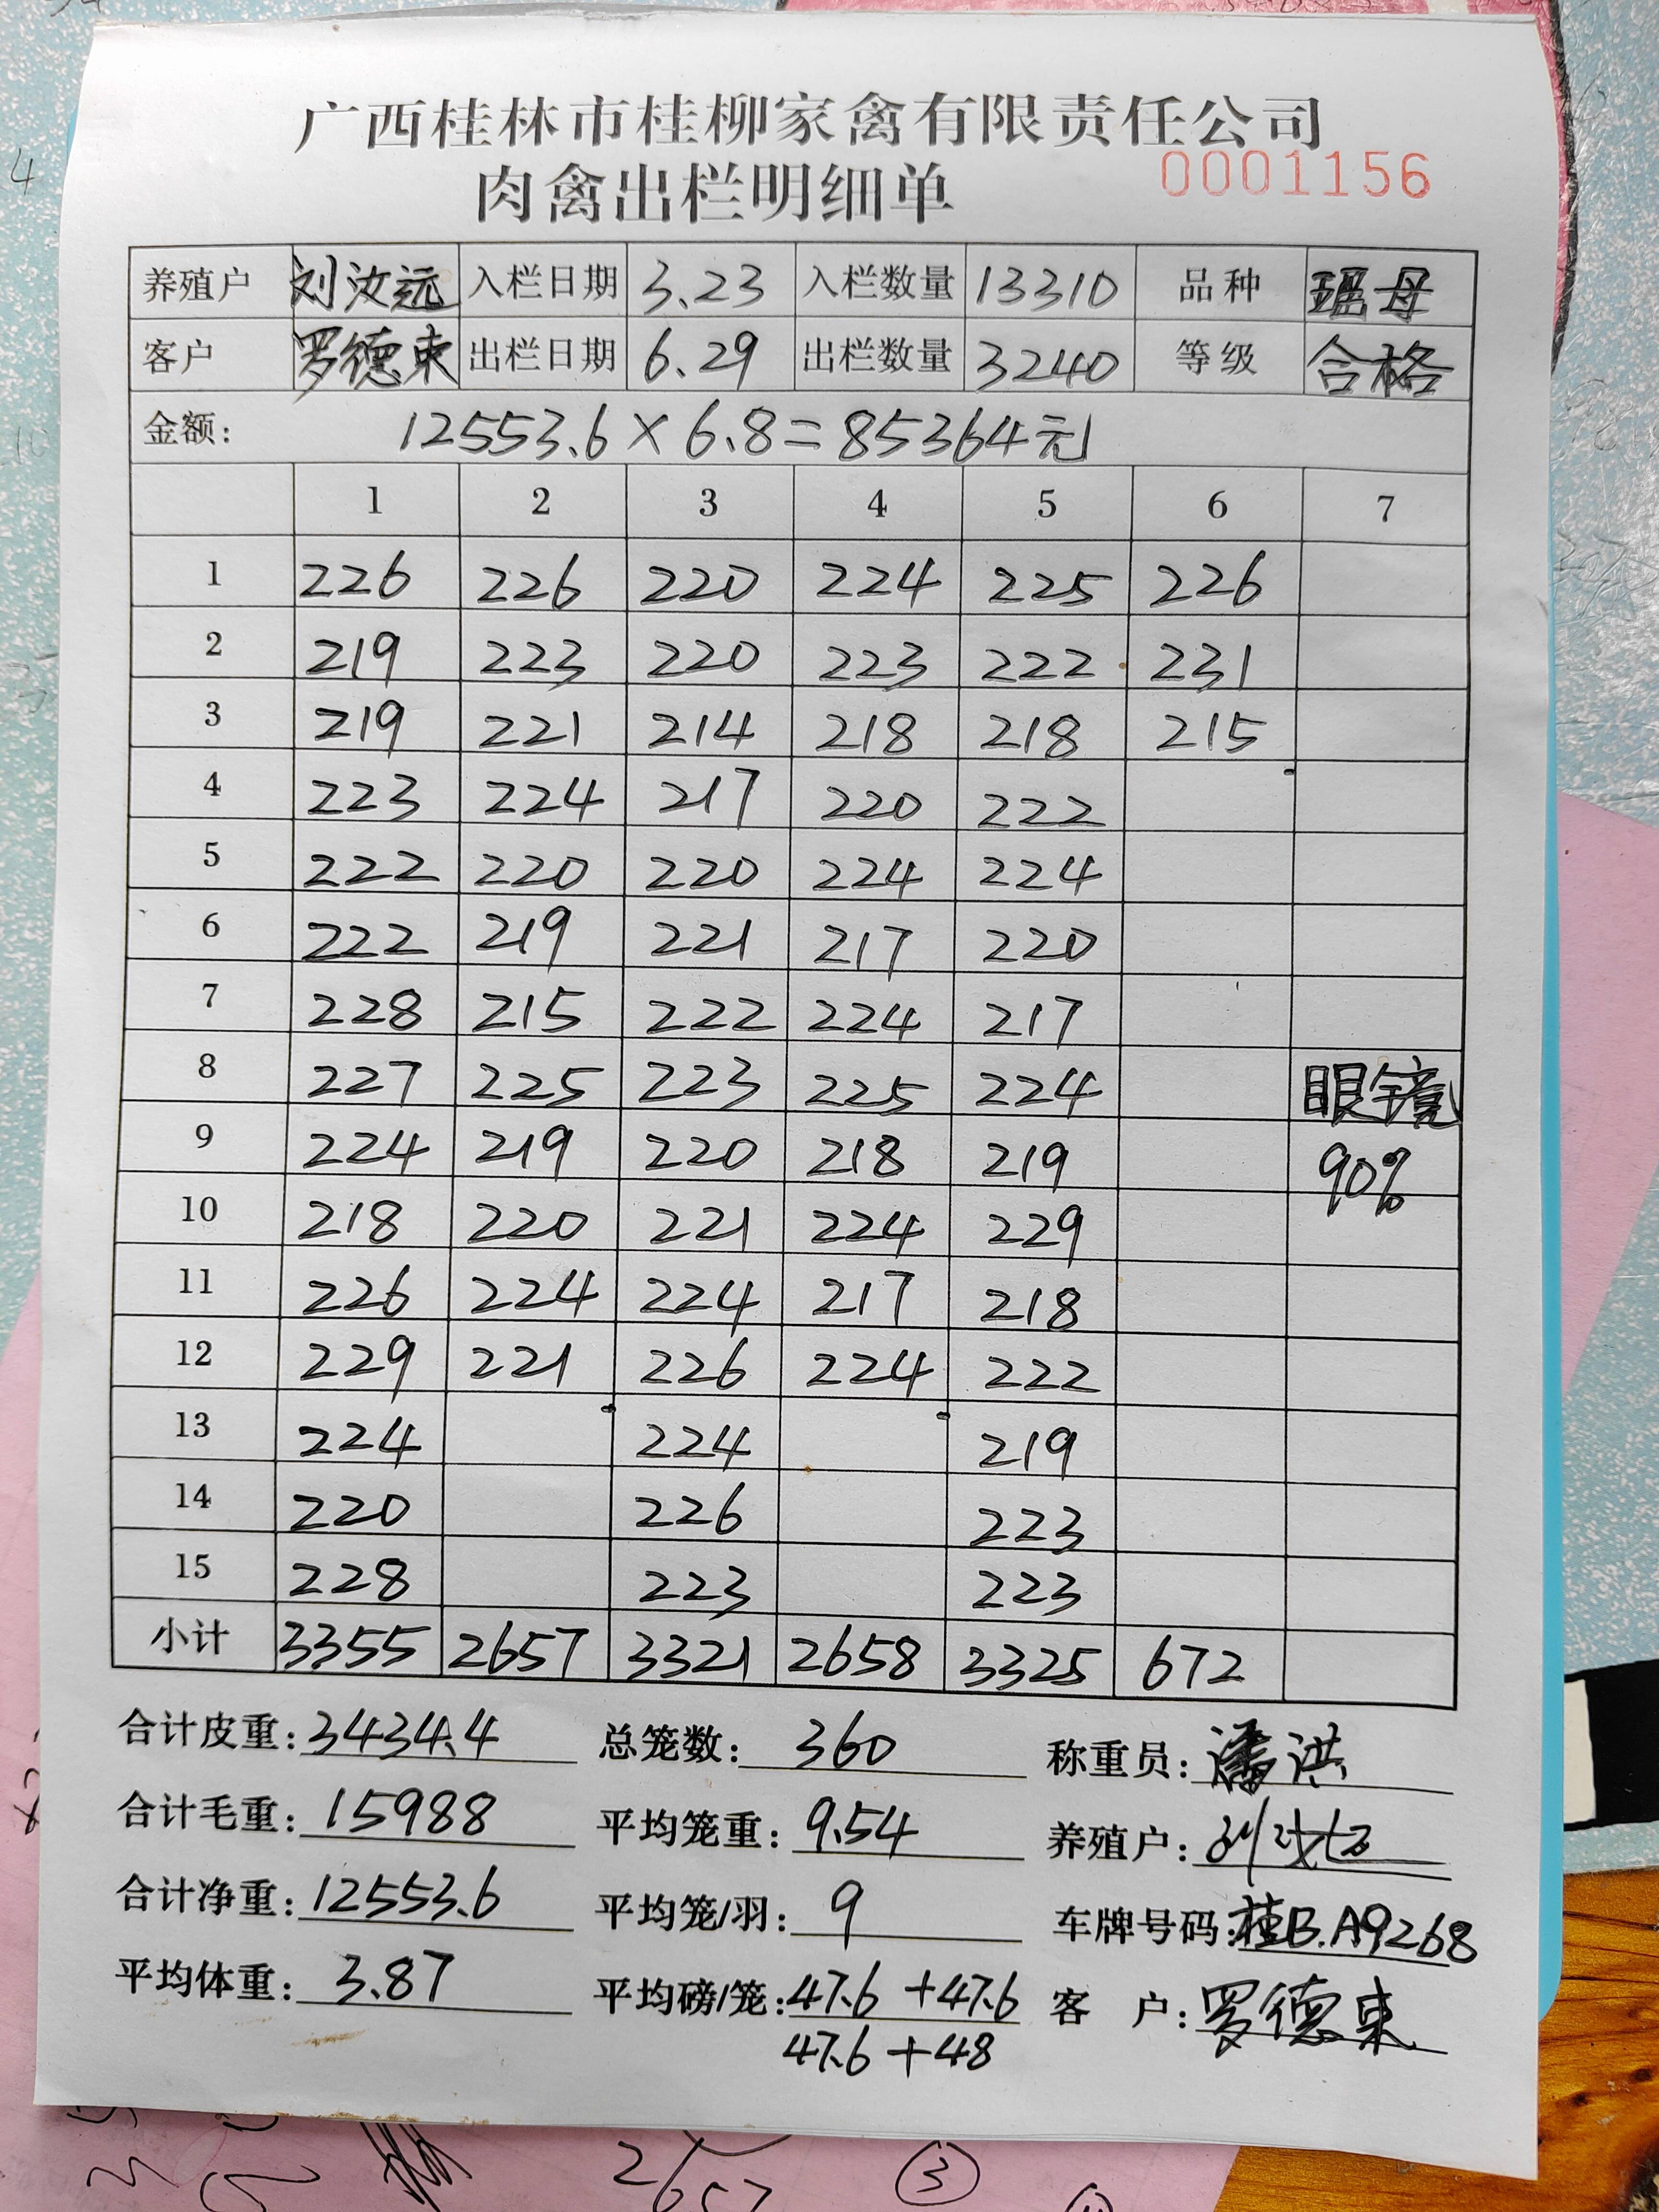 广西桂林市桂柳家禽有限责任公司
肉禽出栏明细单 0001156
养殖户 刘汝远 入栏日期 3.23 入栏数量 13310 品种 瑶母
客户 罗德東 出栏日期 6.29 出栏数量 3240 等级 合格
金额: 12553.6×6.8=85364元
1 2 3 4 5 6 7
1 226 226 220 224 225 226
2 219 223 220 223 222 231
3 219 221 214 218 218 215
4 223 224 217 220 222
5 222 220 220 224 224
6 222 219 221 217 220
7 228 215 222 224 217
8 227 225 223 225 224 眼镜
9 224 219 220 218 219 90%
10 218 220 221 224 229
11 226 224 224 217 218
12 229 221 226 224 222
13 224 224 219
14 220 226 223
15 228 223 223
小计 3355 2657 3321 2658 3325 672
合计皮重: 3434.4 总笼数: 360 称重员: 潘洪
合计毛重: 15988 平均笼重: 9.54 养殖户:
合计净重: 12553.6 平均笼/羽: 9 车牌号码: 桂B.A9268
平均体重: 3.87 平均磅/笼: 47.6+47.6 客 户: 罗德東
47.6+48
2657 ③